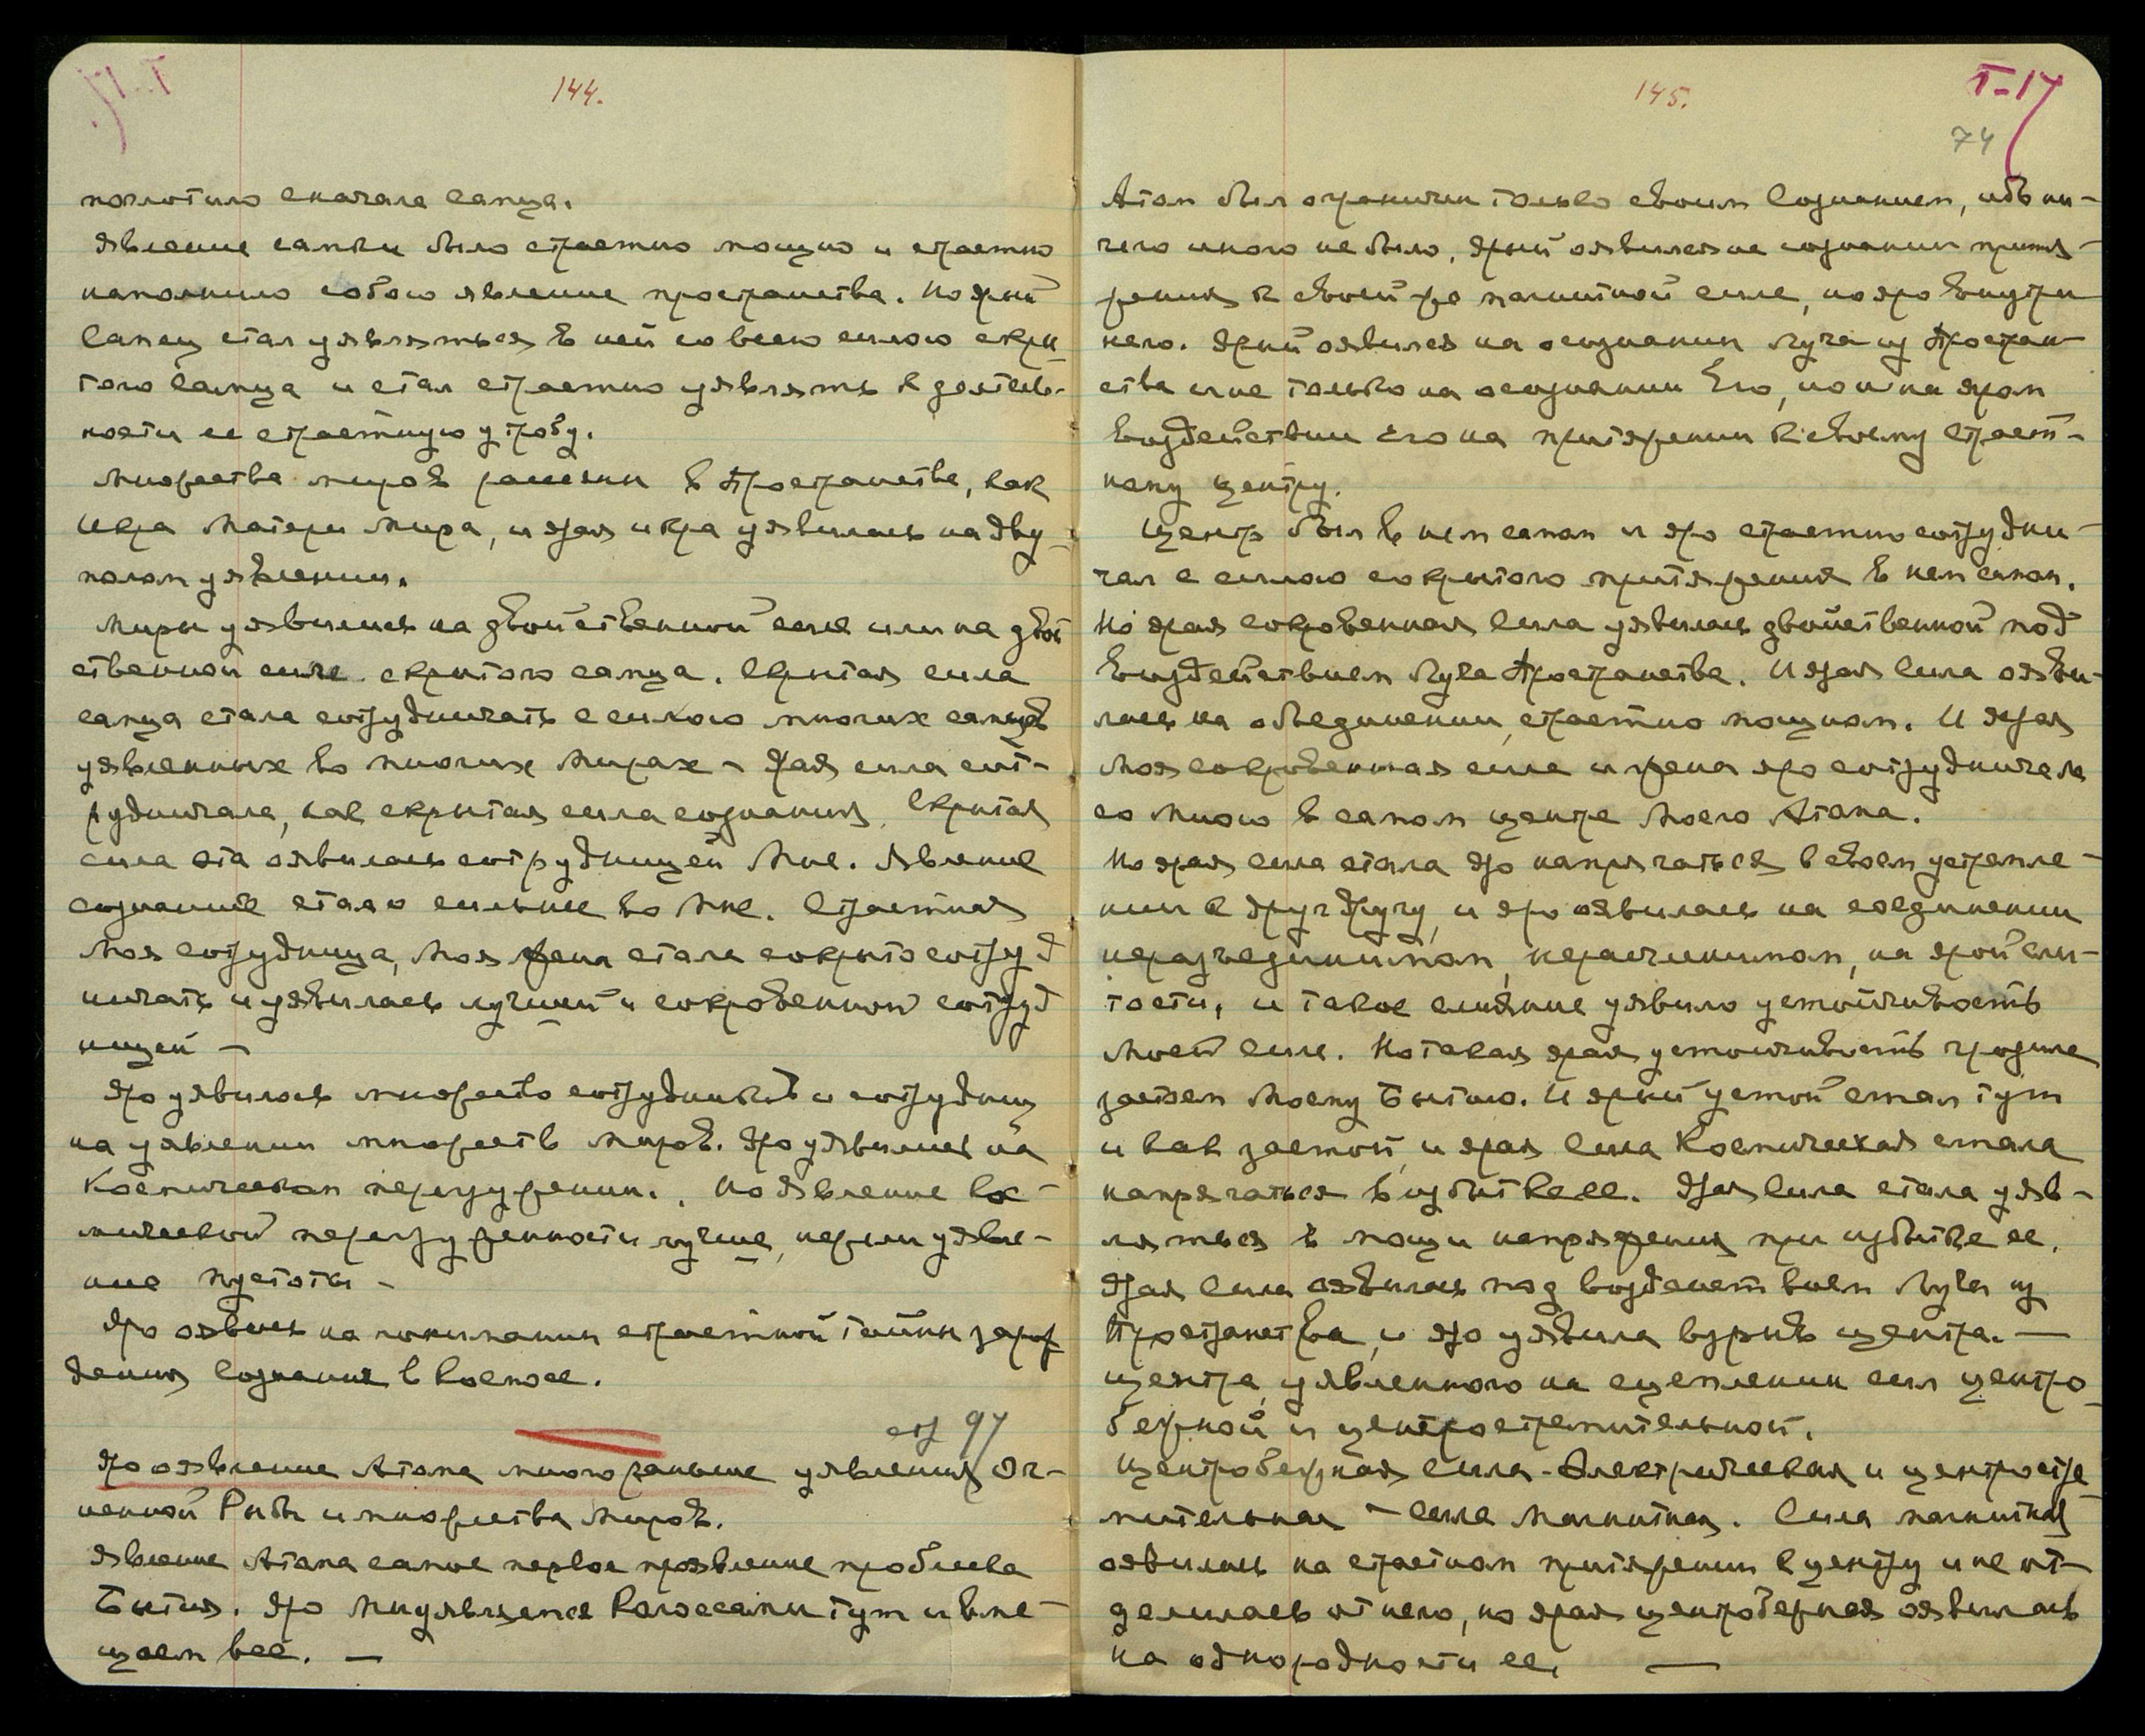 144.
поглотило сначала самца.
Явление самки было страстно мощно и страстно
наполнило собою явление пространства. Но ярый
самец стал уявляться в ней со всею силою скры-
того самца и стал страстно уявлять к деятель-
ности ее страстную утробу.
Множества миров рассеяны в Пространстве, как
Икра Матери Мира, и ярая икра уявилась на дву-
полом уявлении.
Миры уявились на двойственной силе или на двой
ственной силе скрытого самца. Скрытая сила
самца стала сотрудничать с силою многих самцов
уявленных во многих Мирах – Ярая сила сот-
рудничала, как скрытая сила сознания. Скрытая
сила эта оявилась сотрудницей Мне. Явление
сознание стало сильнее во Мне. Страстная
Моя сотрудница, Моя жена стала сокрыто сотруд
ничать и уявилась лучшей и сокровенной сотруд
ницей –
Яро уявилось множество сотрудников и сотрудниц
на уявлении множеств миров. Яро уявились на
Космическом перегружении. Но явление кос-
мической перегруженности лучше, нежели уявле-
ние пустоты –
Яро оявись на понимании страстной тайны зарож
дения сознания в Космосе.
стр 97
Яро оявление Атома много раньше уявления Ог-
ненной Рыбы и множества миров.
Явление Атома самое первое проявление проблеска
Бытия. Яро Мы уявляемся Колоссами тут и вме-
щаем все. —
145.
I-17
74
Атом был ограничен только своим сознанием, ибо ни-
чего иного не было, ярый оявился на сознании притя-
жения к своей же магнитной силе, но яро внутри
него. Ярый оявился на осознании Луча из Простран-
ства и не только на осознании Его, но и на яром
воздействии Его на притяжении к своему страст-
ному центру.
Центр был в нем самом и яро страстно сотрудни-
чал с силою сокрытого притяжения в нем самом.
Но ярая сокровенная сила уявилась двойственной под
воздействием Луча Пространства. И ярая сила ояви-
лась на объединении, страстно мощном. И ярая
Моя сокровенная сила и жена яро сотрудничала
со Мною в самом центре Моего Атома.
Но ярая сила стала яро напрягаться в своем устремле-
нии к друг другу, и яро оявилась на соединении
неразъединимом, нерасчленимом, на ярой сли-
тости, и такое слияние уявило устойчивость
Моей силе. Но такая ярая устойчивость грозила
застоем Моему Бытию. И ярый устой стал тут
и как застой, и ярая сила Космическая стала
напрягаться в избытке ее. Ярая сила стала уяв-
ляться в мощи напряжения при избытке ее.
Ярая сила оявилась под воздействием Луча из
Пространства, и яро уявила взрыв центра. —
центра, уявленного на сцеплении сил центро-
бежной и центростремительной.
Центробежная сила - Электрическая и центростре
мительная – сила Магнитная. Сила магнитная
оявилась на страстном притяжении к центру и не от-
делилась от него, но ярая центробежная оявилась
на однородности ее. —